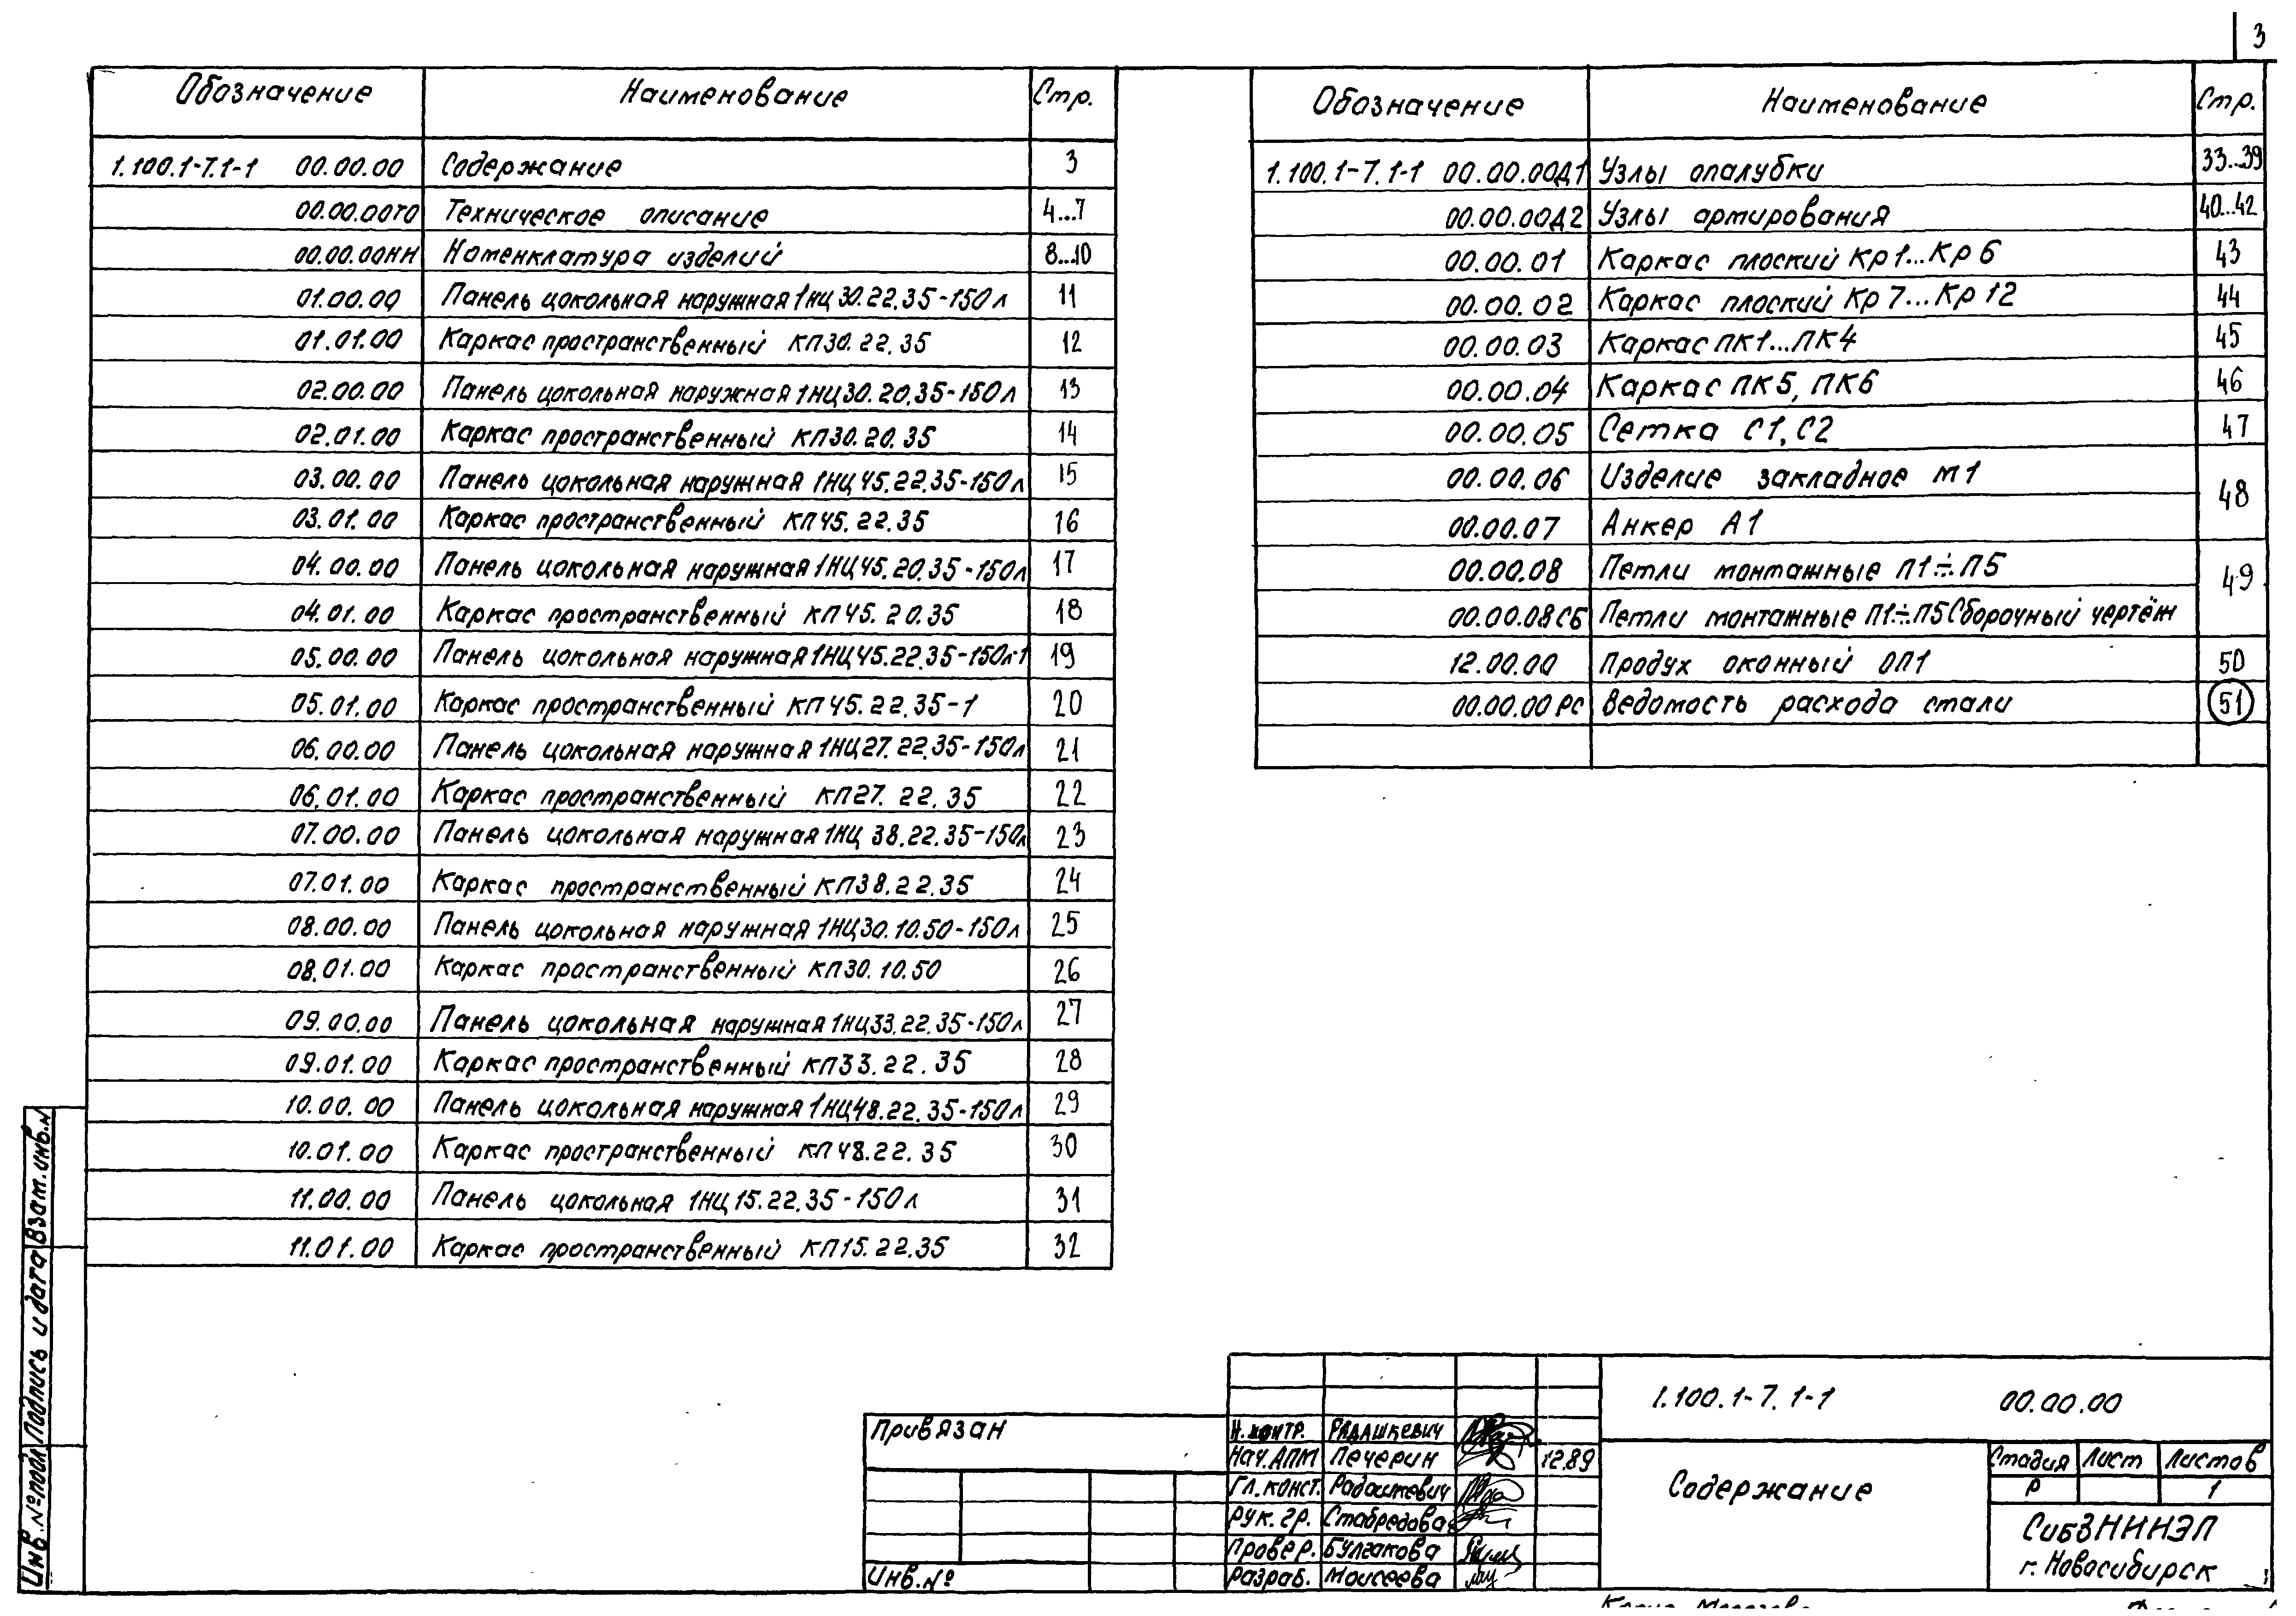 3
Обозначение Наименование Стр.
1.100.1-7.1-1 00.00.00 Содержание 3
00.00.00ТО Техническое описание 4...7
00.00.00НН Номенклатура изделий 8...10
01.00.00 Панель цокольная наружная 1НЦ30.22.35-150л 11
01.01.00 Каркас пространственный КП30.22.35 12
02.00.00 Панель цокольная наружная 1НЦ30.20.35-150л 13
02.01.00 Каркас пространственный КП30.20.35 14
03.00.00 Панель цокольная наружная 1НЦ45.22.35-150л 15
03.01.00 Каркас пространственный КП45.22.35 16
04.00.00 Панель цокольная наружная 1НЦ45.20.35-150л 17
04.01.00 Каркас пространственный КП45.20.35 18
05.00.00 Панель цокольная наружная 1НЦ45.22.35-150л-1 19
05.01.00 Каркас пространственный КП45.22.35-1 20
06.00.00 Панель цокольная наружная 1НЦ27.22.35-150л 21
06.01.00 Каркас пространственный КП27.22.35 22
07.00.00 Панель цокольная наружная 1НЦ38.22.35-150л 23
07.01.00 Каркас пространственный КП38.22.35 24
08.00.00 Панель цокольная наружная 1НЦ30.10.50-150л 25
08.01.00 Каркас пространственный КП30.10.50 26
09.00.00 Панель цокольная наружная 1НЦ33.22.35-150л 27
09.01.00 Каркас пространственный КП33.22.35 28
10.00.00 Панель цокольная наружная 1НЦ48.22.35-150л 29
10.01.00 Каркас пространственный КП48.22.35 30
11.00.00 Панель цокольная 1НЦ15.22.35-150л 31
11.01.00 Каркас пространственный КП15.22.35 32
Обозначение Наименование Стр.
1.100.1-7.1-1 00.00.00Д1 Узлы опалубки 33...39
00.00.00Д2 Узлы армирования 40...42
00.00.01 Каркас плоский Кр1...Кр6 43
00.00.02 Каркас плоский Кр7...Кр12 44
00.00.03 Каркас ПК1...ПК4 45
00.00.04 Каркас ПК5, ПК6 46
00.00.05 Сетка С1, С2 47
00.00.06 Изделие закладное М1 48
00.00.07 Анкер А1
00.00.08 Петли монтажные П1÷П5 49
00.00.08СБ Петли монтажные П1÷П5 Сборочный чертёж
12.00.00 Продух оконный ОП1 50
00.00.00РС Ведомость расхода стали 51
Инв.№подл Подпись и дата Взам.инв.№
Привязан
Инв.№
Н.контр. Радашкевич
Нач.АПМ Печерин 12.89
Гл.конст. Радашкевич
Рук.гр. Стабредова
Провер. Булгакова
Разраб. Моисеева
1.100.1-7.1-1 00.00.00
Содержание
Стадия Лист Листов
Р 1
СибЗНИИЭП
г.Новосибирск